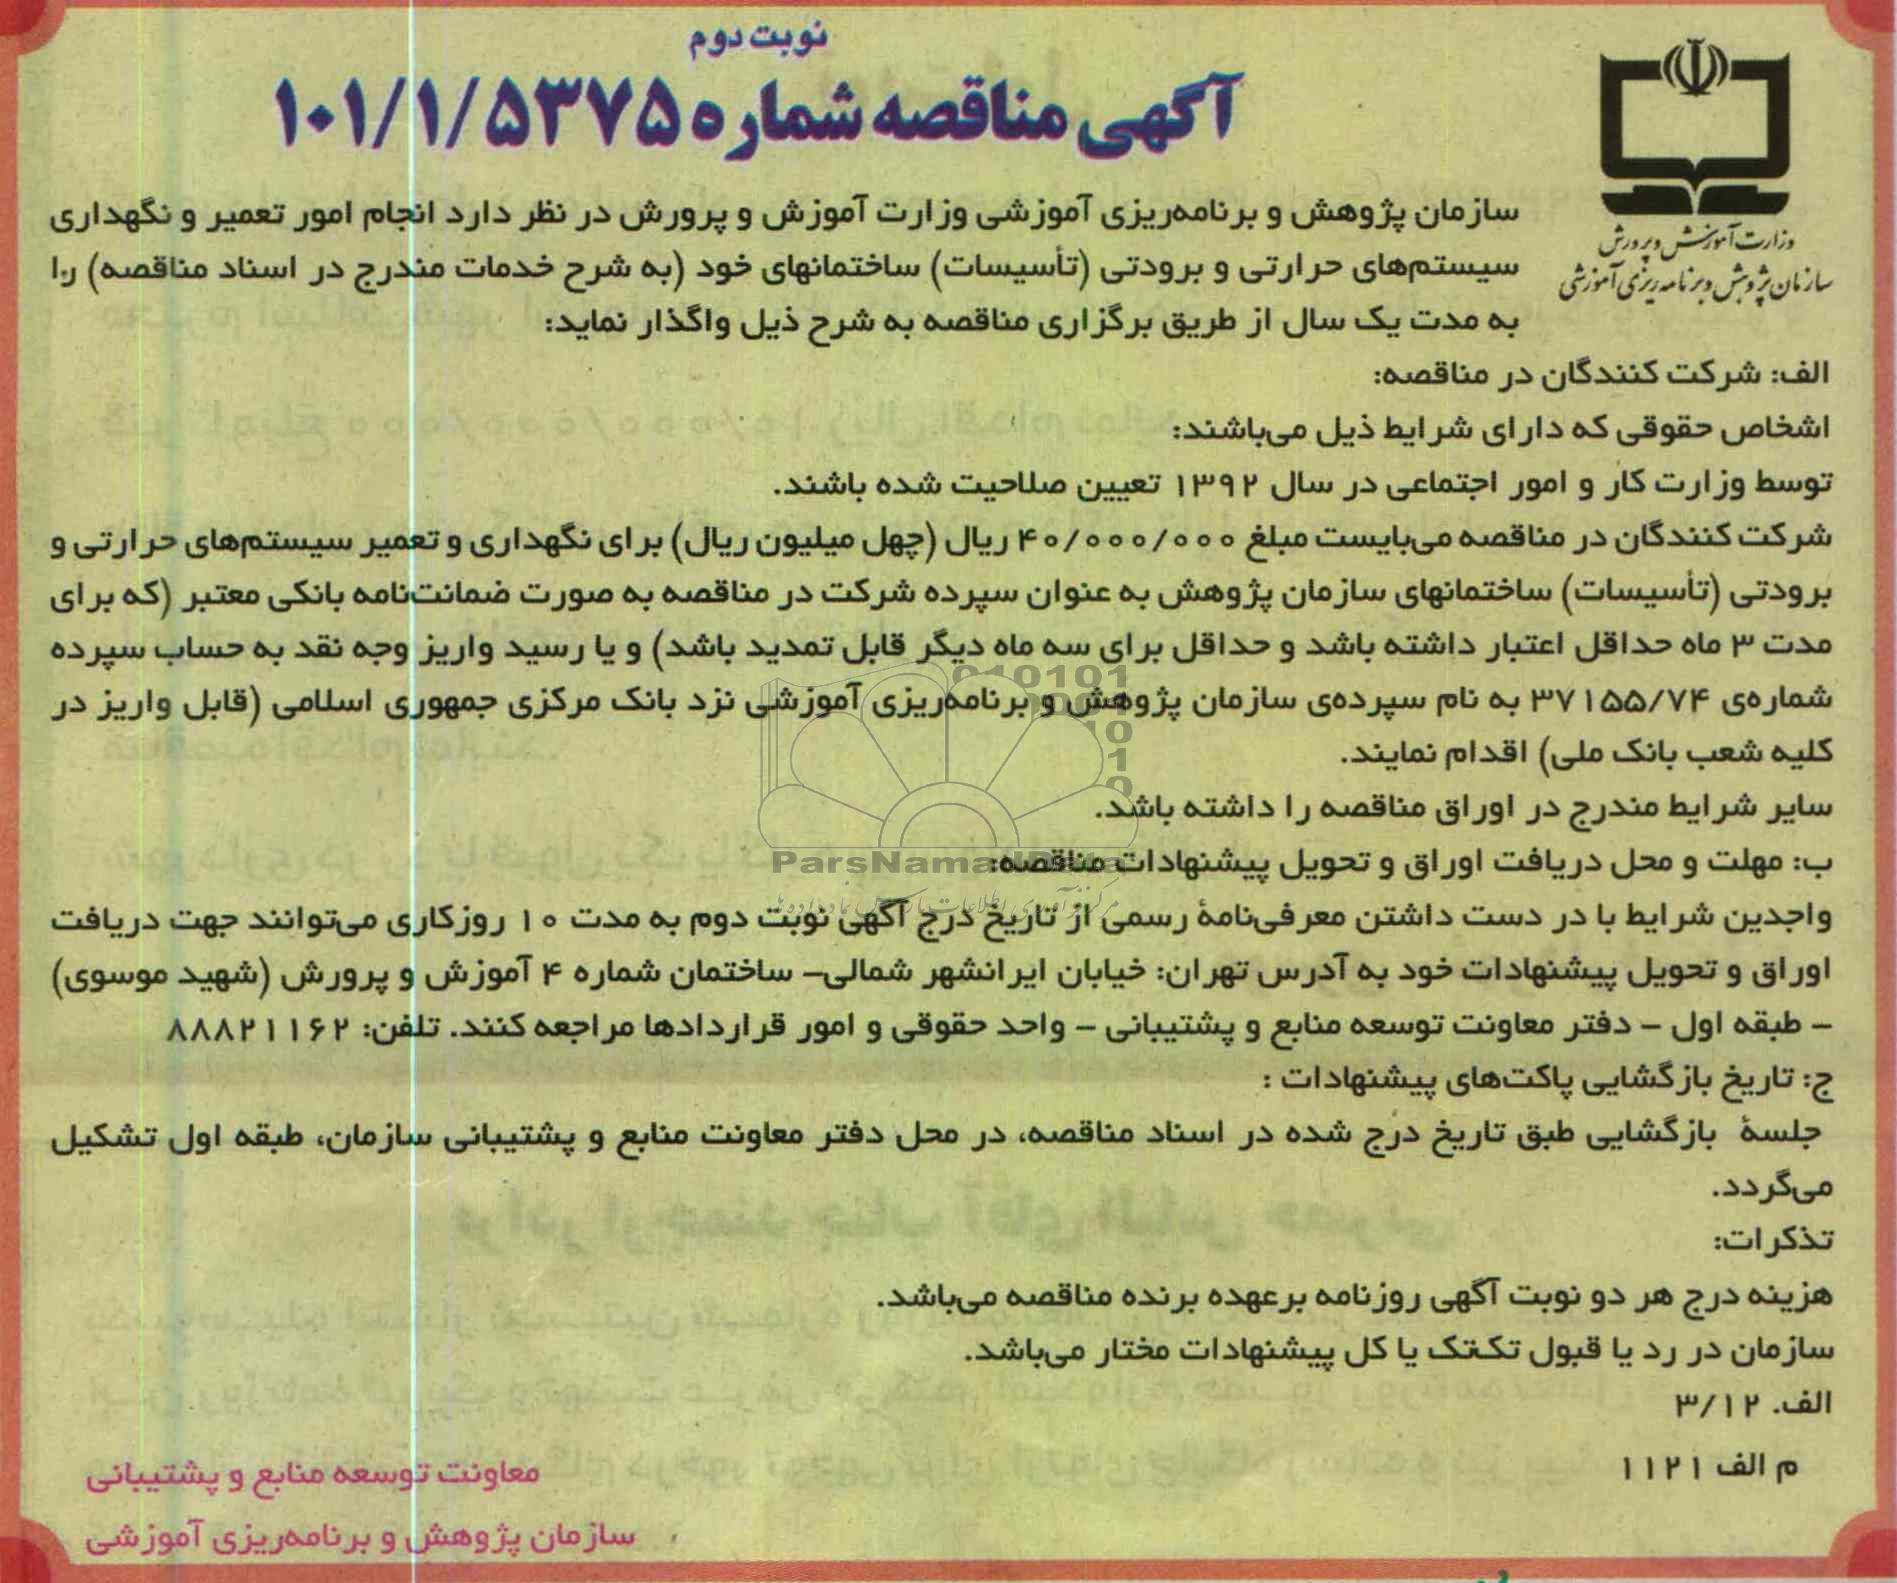 نوبت دوم
آگهی مناقصه شماره ۱۰۱/۱/۵۳۷۵
وزارت آموزش و پرورش
سازمان پژوهش و برنامه‌ریزی آموزشی
سازمان پژوهش و برنامه‌ریزی آموزشی وزارت آموزش و پرورش در نظر دارد انجام امور تعمیر و نگهداری
سیستم‌های حرارتی و برودتی (تأسیسات) ساختمانهای خود (به شرح خدمات مندرج در اسناد مناقصه) را
به مدت یک سال از طریق برگزاری مناقصه به شرح ذیل واگذار نماید:
الف: شرکت کنندگان در مناقصه:
اشخاص حقوقی که دارای شرایط ذیل می‌باشند:
توسط وزارت کار و امور اجتماعی در سال ۱۳۹۲ تعیین صلاحیت شده باشند.
شرکت کنندگان در مناقصه می‌بایست مبلغ ۴۰/۰۰۰/۰۰۰ ریال (چهل میلیون ریال) برای نگهداری و تعمیر سیستم‌های حرارتی و
برودتی (تأسیسات) ساختمانهای سازمان پژوهش به عنوان سپرده شرکت در مناقصه به صورت ضمانت‌نامه بانکی معتبر (که برای
مدت ۳ ماه حداقل اعتبار داشته باشد و حداقل برای سه ماه دیگر قابل تمدید باشد) و یا رسید واریز وجه نقد به حساب سپرده
شماره‌ی ۳۷۱۵۵/۷۴ به نام سپرده‌ی سازمان پژوهش و برنامه‌ریزی آموزشی نزد بانک مرکزی جمهوری اسلامی (قابل واریز در
کلیه شعب بانک ملی) اقدام نمایند.
سایر شرایط مندرج در اوراق مناقصه را داشته باشد.
ب: مهلت و محل دریافت اوراق و تحویل پیشنهادات مناقصه:
ParsNamadData
واجدین شرایط با در دست داشتن معرفی‌نامهٔ رسمی از تاریخ درج آگهی نوبت دوم به مدت ۱۰ روزکاری می‌توانند جهت دریافت
اوراق و تحویل پیشنهادات خود به آدرس تهران: خیابان ایرانشهر شمالی– ساختمان شماره ۴ آموزش و پرورش (شهید موسوی)
– طبقه اول – دفتر معاونت توسعه منابع و پشتیبانی – واحد حقوقی و امور قراردادها مراجعه کنند. تلفن: ۸۸۸۲۱۱۶۲
ج: تاریخ بازگشایی پاکت‌های پیشنهادات :
جلسهٔ بازگشایی طبق تاریخ درج شده در اسناد مناقصه، در محل دفتر معاونت منابع و پشتیبانی سازمان، طبقه اول تشکیل
می‌گردد.
تذکرات:
هزینه درج هر دو نوبت آگهی روزنامه برعهده برنده مناقصه می‌باشد.
سازمان در رد یا قبول تک‌تک یا کل پیشنهادات مختار می‌باشد.
الف. ۳/۱۲
م الف ۱۱۲۱
معاونت توسعه منابع و پشتیبانی
سازمان پژوهش و برنامه‌ریزی آموزشی